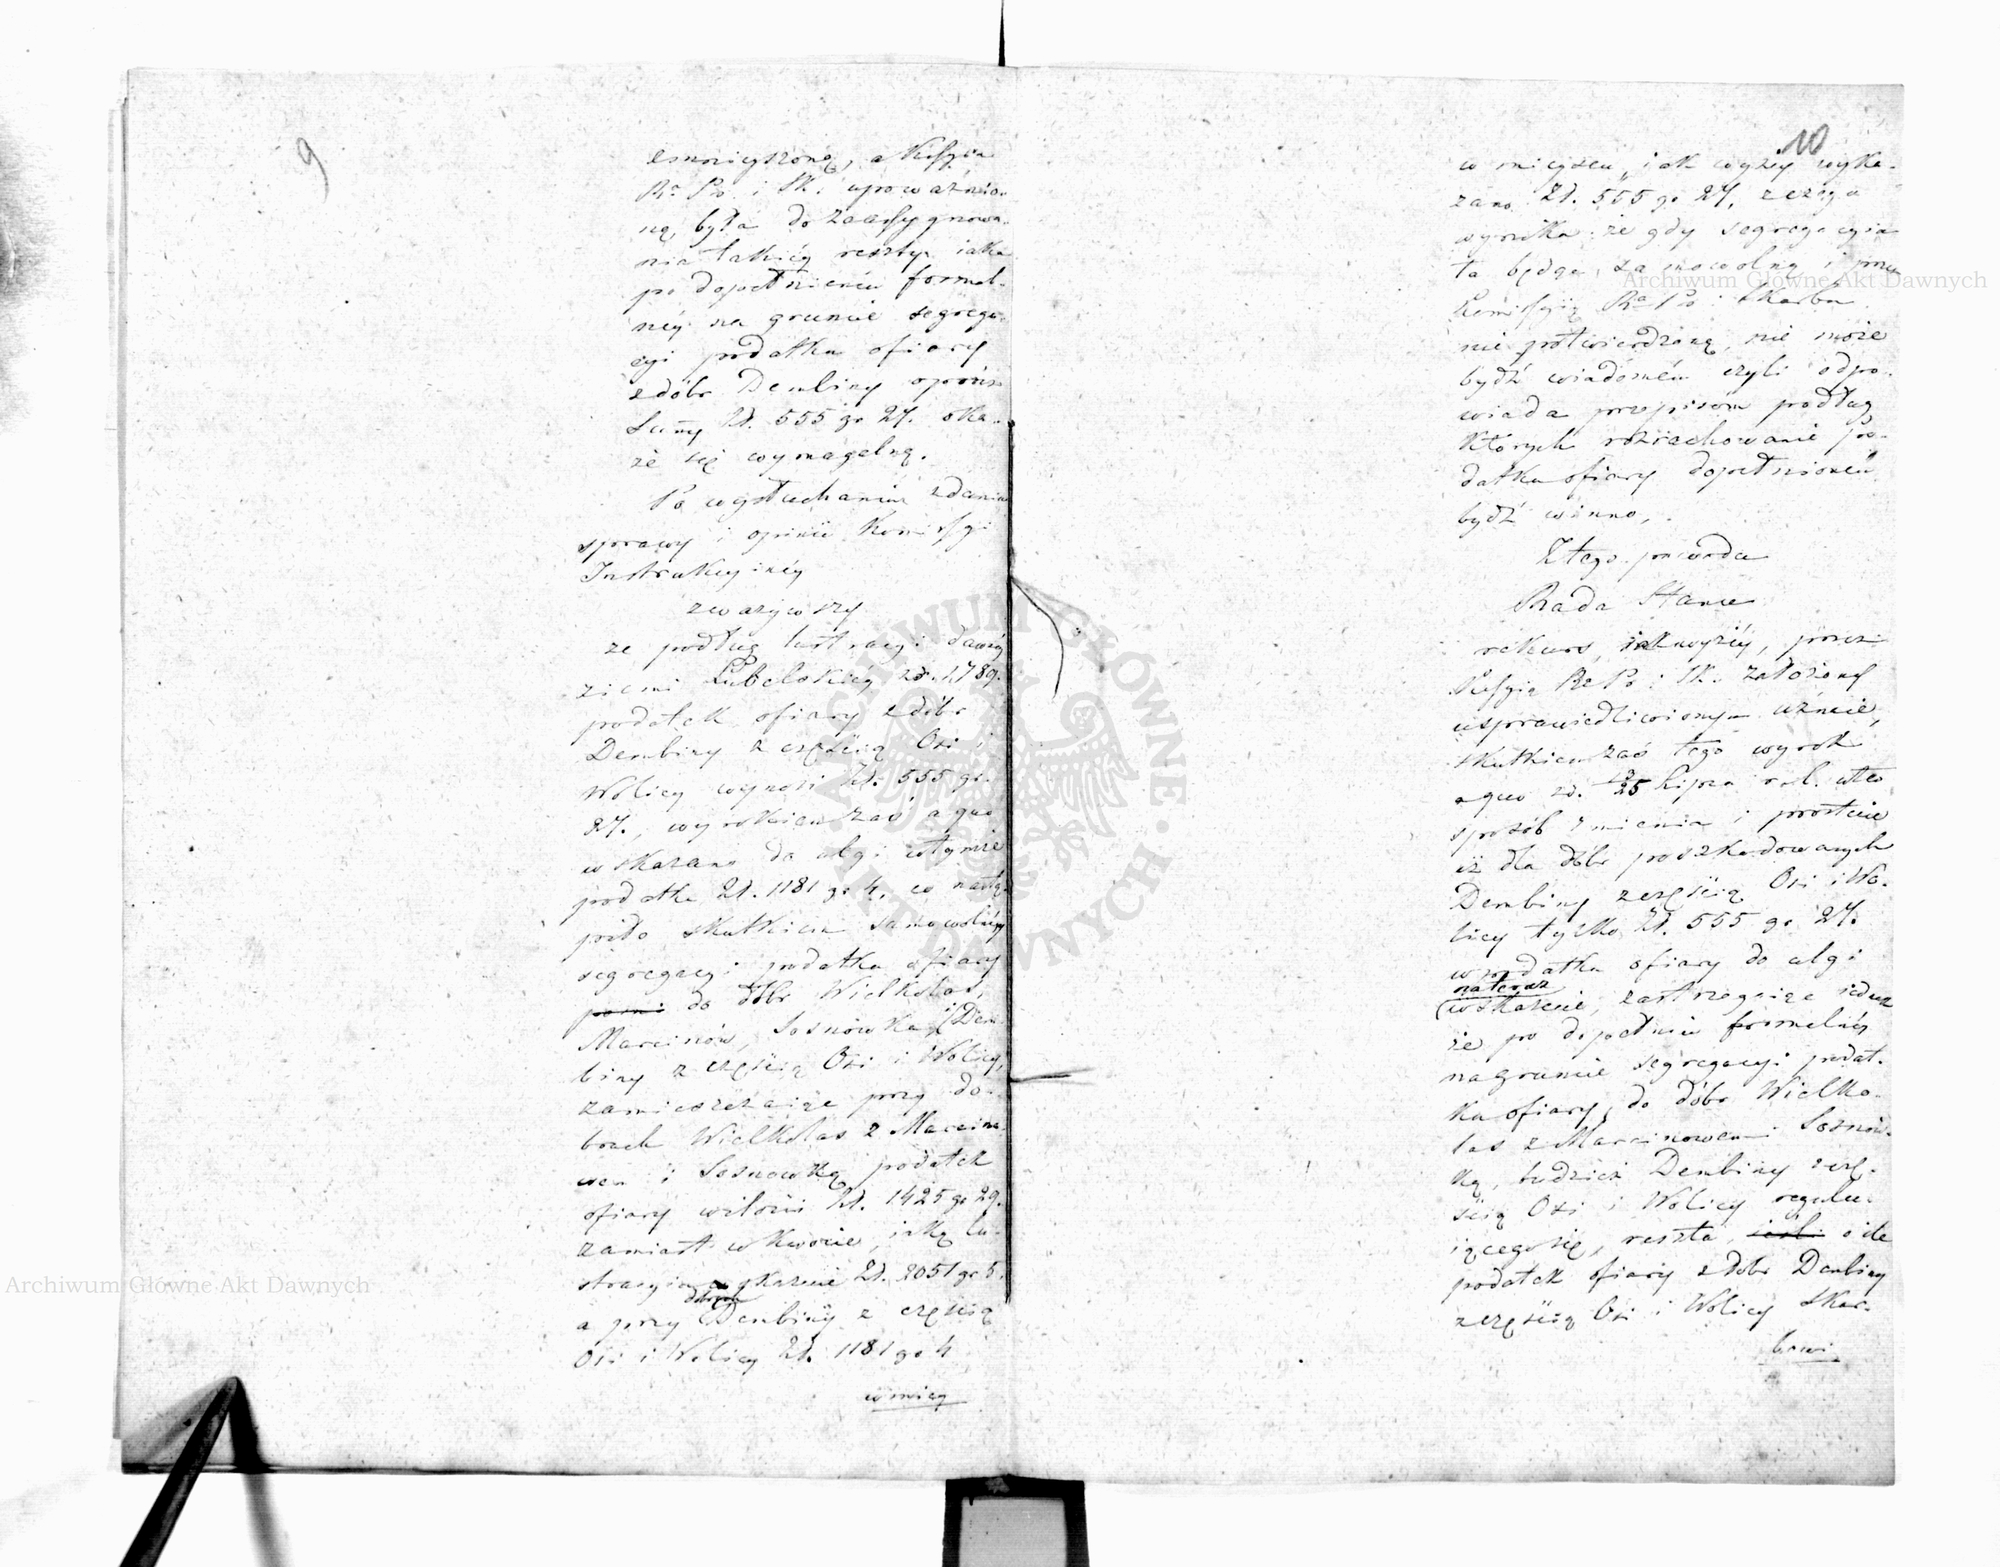 9
zmnieyszoną, a Kssyia
Rz. Po. i Sk. upoważnio-
ną była do zaassygnowa-
nia takiéy reszty, iaka
po dopełnieniu formal-
néy na gruncie segrega-
cyi podatku ofiary
z dóbr Dembiny oprócz
Summy Zł. 555 gr 27. oka-
że się wymagalną.
Po wysłuchaniu zdania
sprawy i opinii Komissyi
Instrukcyinéy
zważywszy
że podług lustracyi dawnéy
ziemi Lubelskiey z r. 1789.
podatek ofiary z dóbr
Dembiny z częścią Osi i
Wolicy wynosi Zł. 555 gr.
27., wyrokiem zaś a quo
wskazano do ulgi w tymże
podatku Zł. 1181 gr 4, co nastą-
piło skutkiem samowolnéy
segregacyi podatku ofiary
do dóbr Wielkolas,
Marcinów, Sosnówka i Dem-
biny z częścią Osi i Wolicy,
zamieszczaiąc przy do-
brach Wielkolas z Marcino-
wem i Sosnówką podatek
ofiary w ilości Zł. 1425 gr 29.
zamiast w kwocie, iaką lu-
stracyia wykazuie Zł. 2051 gr 5.
dobrach
a przy Dembiny z częścią
Osi i Wolicy Zł. 1181 gr 4
w miey
10
w mieyscu, iak wyżéy wyka-
zano Zł. 555 gr 27, z czego
wynika że gdy segregacyia
ta będąc samowolną i przez
Komissyią Rz. Po. i Skarbu
nie potwierdzoną, nie może
bydź wiadomém czyli odpo-
wiada przepisom podług
których rozrachowanie po-
datku ofiary dopełnioném
bydź winno,
Z tego powodu
Rada Stanu
rekurs, iak wyżéy, przez
Kssyią Rz Po i Sk. założony
usprawiedliwionym uznaie,
skutkiem zaś tego wyrok
a quo z d. 25 Lipca r. b. w ten
sposób zmienia i prostuie
iż dla dóbr poszkodowanych
Dembiny z częścią Osi i Wo-
licy tylko Zł. 555 gr 27.
w podatku ofiary do ulgi
na teraz
wskazuie, zastrzegaiąc iednak
że po dopełnieniu formalnéy
na gruncie segregacyi podat-
ku ofiary, do dóbr Wielko-
las z Marcinowem i Sosnów-
ką, tudzież Dembiny z czę-
ścią Osi i Wolicy regulu-
iącego się, reszta, o ile
podatek ofiary z dóbr Dembiny
z częścią Osi i Wolicy Skar-
bowi
Archiwum Główne Akt Dawnych
Archiwum Główne Akt Dawnych
ARCHIWUM GŁÓWNE AKT DAWNYCH